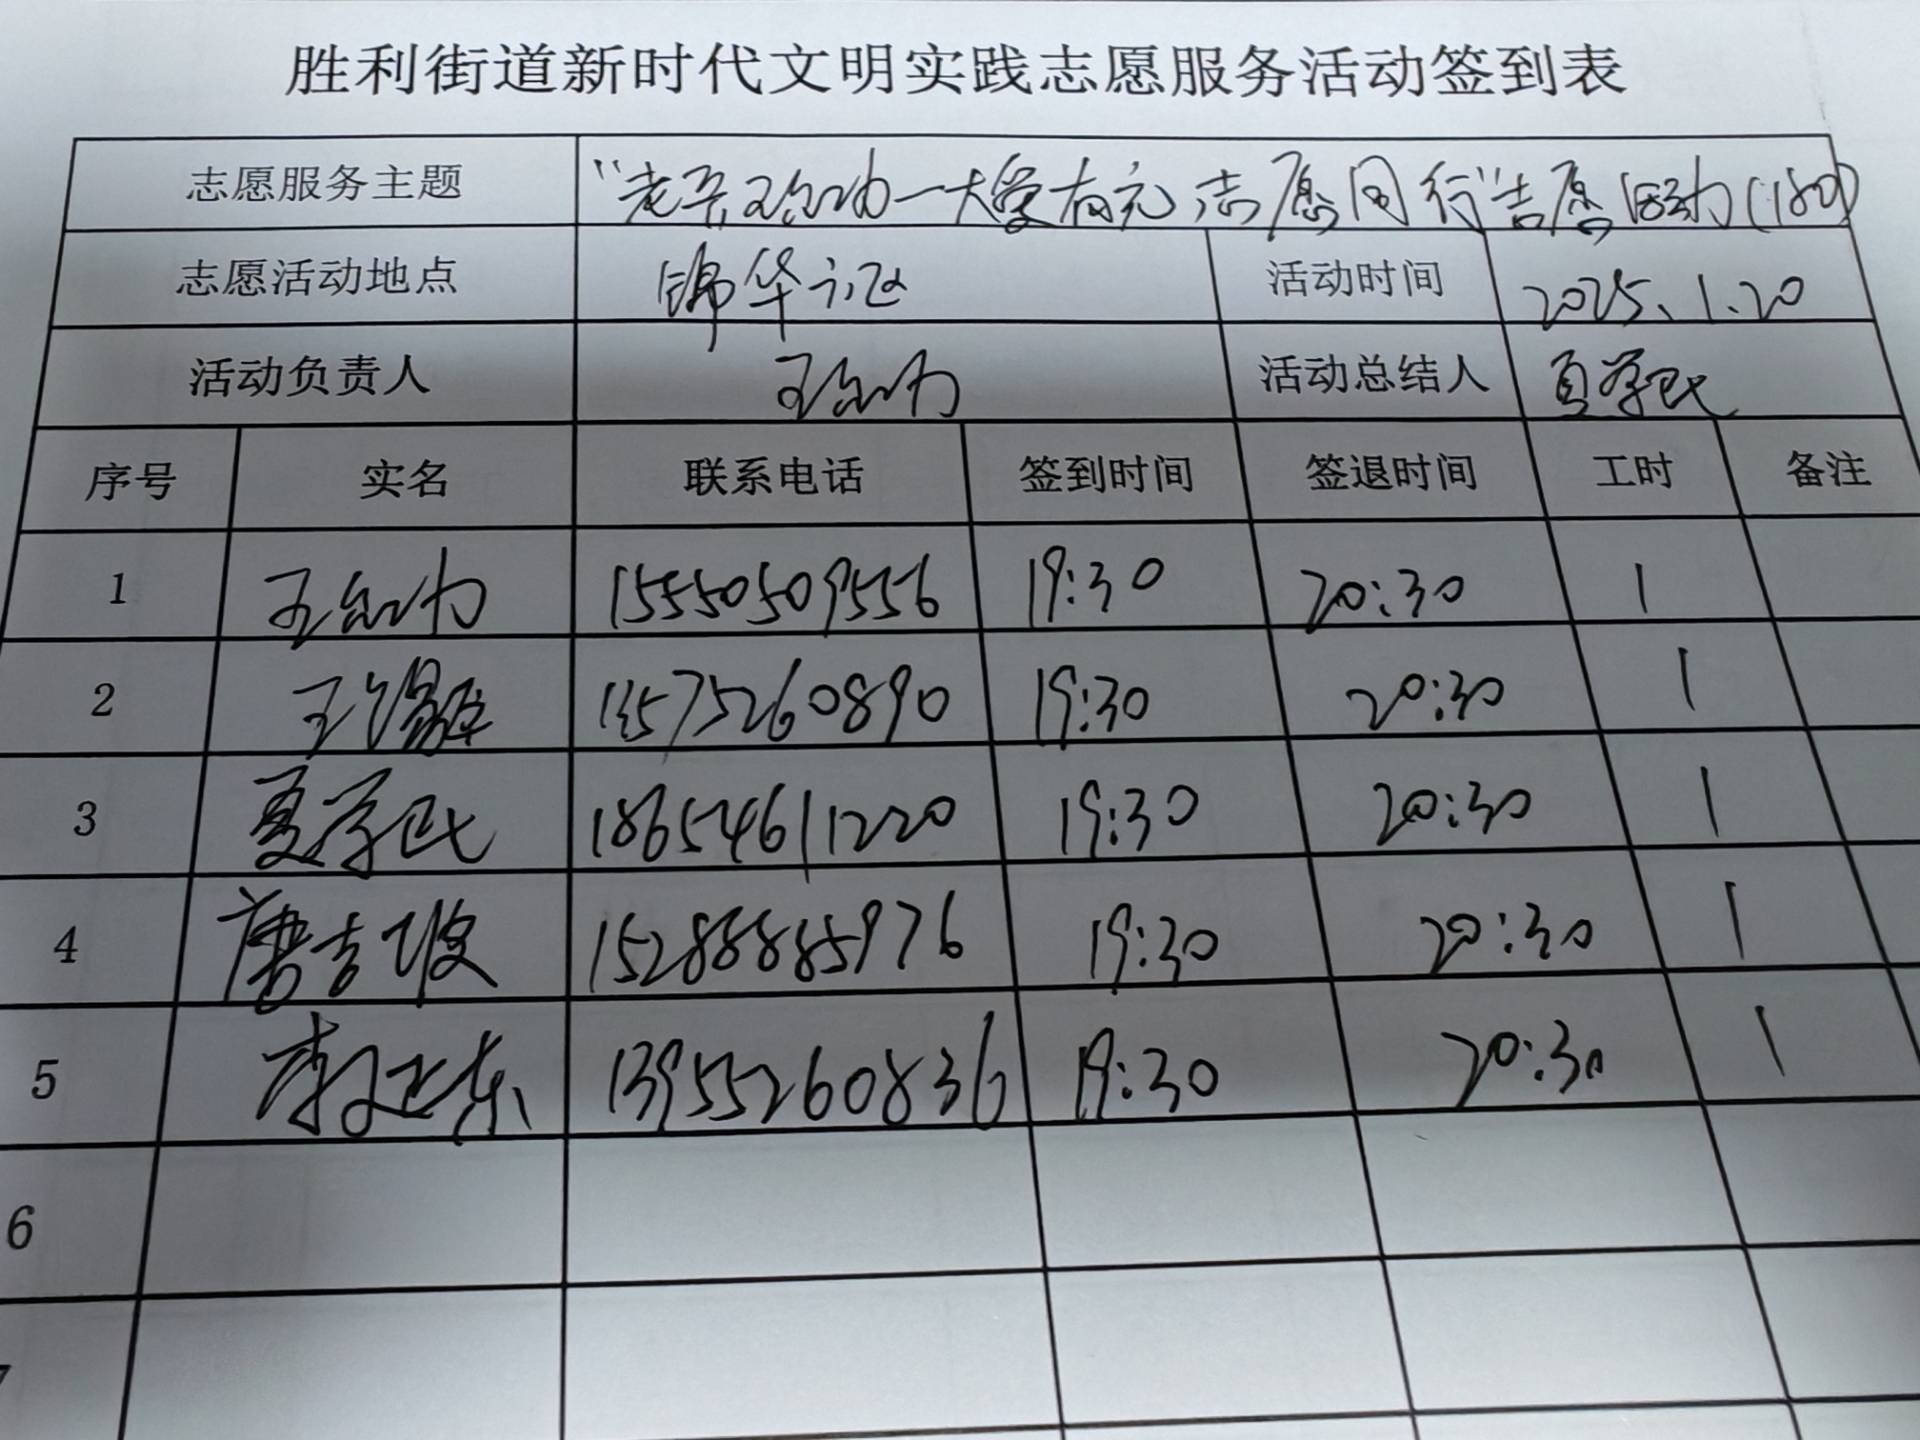 胜利街道新时代文明实践志愿服务活动签到表
志愿服务主题 志愿同行"志愿活动(180)
志愿活动地点 锦华 活动时间 2025.1.20
活动负责人 王 活动总结人 夏学民
序号 实名 联系电话 签到时间 签退时间 工时 备注
1 王 15550509556 19:30 20:30 1
2 王 19:30 20:30 1
3 夏学民 18654611220 19:30 20:30 1
4 唐 15288885976 19:30 20:30 1
5 李 13955260836 19:30 20:30 1
6